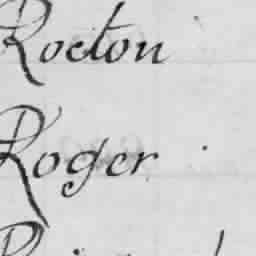 Rocton
Roger